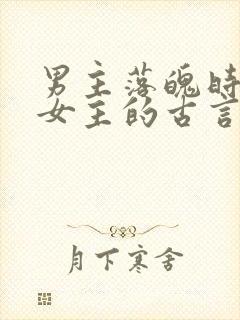 男主落魄时
女主的古言
月下寒舍